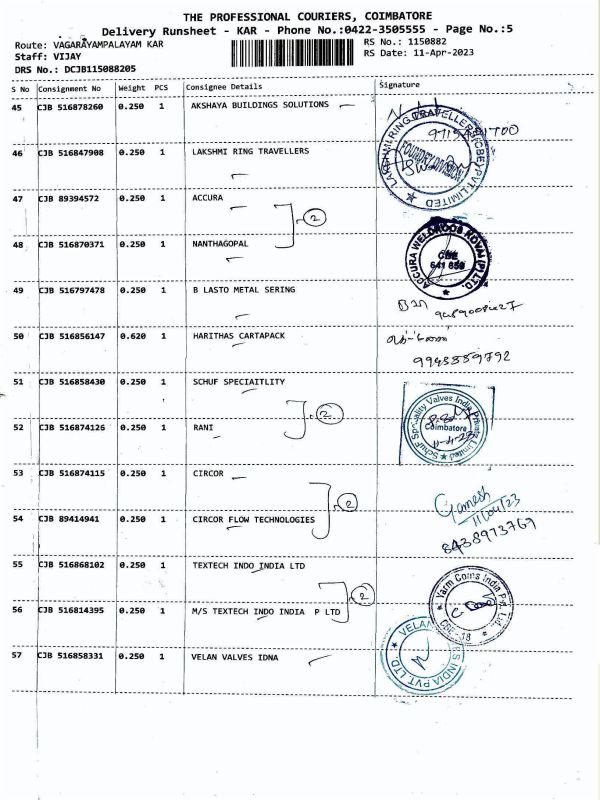 THE PROFESSIONAL COURIERS, COIMBATORE
Delivery Runsheet - KAR - Phone No.:0422-3505555 - Page No.:5
Route: VAGARAYAMPALAYAM KAR
RS No.: 1150882
Staff: VIJAY
RS Date: 11-Apr-2023
DRS No.: DCJB115088205
S No Consignment No Weight PCS Consignee Details Signature
45 CJB 516878260 0.250 1 AKSHAYA BUILDINGS SOLUTIONS
LAKSHMI RING TRAVELLERS (CBE) PVT LIMITED
FOUNDRY DIVISION
46 CJB 516847908 0.250 1 LAKSHMI RING TRAVELLERS
47 CJB 89394572 0.250 1 ACCURA
2
48 CJB 516870371 0.250 1 NANTHAGOPAL
ACCURA WELDRODS KOVAI (P) LTD.
CBE
641 659
49 CJB 516797478 0.250 1 B LASTO METAL SERING
50 CJB 516856147 0.620 1 HARITHAS CARTAPACK
51 CJB 516858430 0.250 1 SCHUF SPECIAITLITY
2
Schuf Speciality Valves India Private Limited
Coimbatore
52 CJB 516874126 0.250 1 RANI
53 CJB 516874115 0.250 1 CIRCOR
2
Ganesh
11/04/23
8438973769
54 CJB 89414941 0.250 1 CIRCOR FLOW TECHNOLOGIES
55 CJB 516868102 0.250 1 TEXTECH INDO INDIA LTD
2
Yarn Coms India Pvt. Ltd.,
CBE-18
56 CJB 516814395 0.250 1 M/S TEXTECH INDO INDIA P LTD
57 CJB 516858331 0.250 1 VELAN VALVES IDNA
VELAN INDIA PVT. LTD.